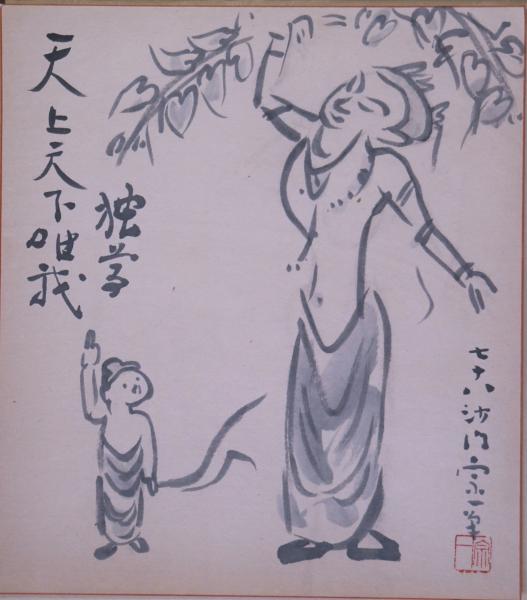 天上天下唯我
独尊
七十八沙門宗一筆